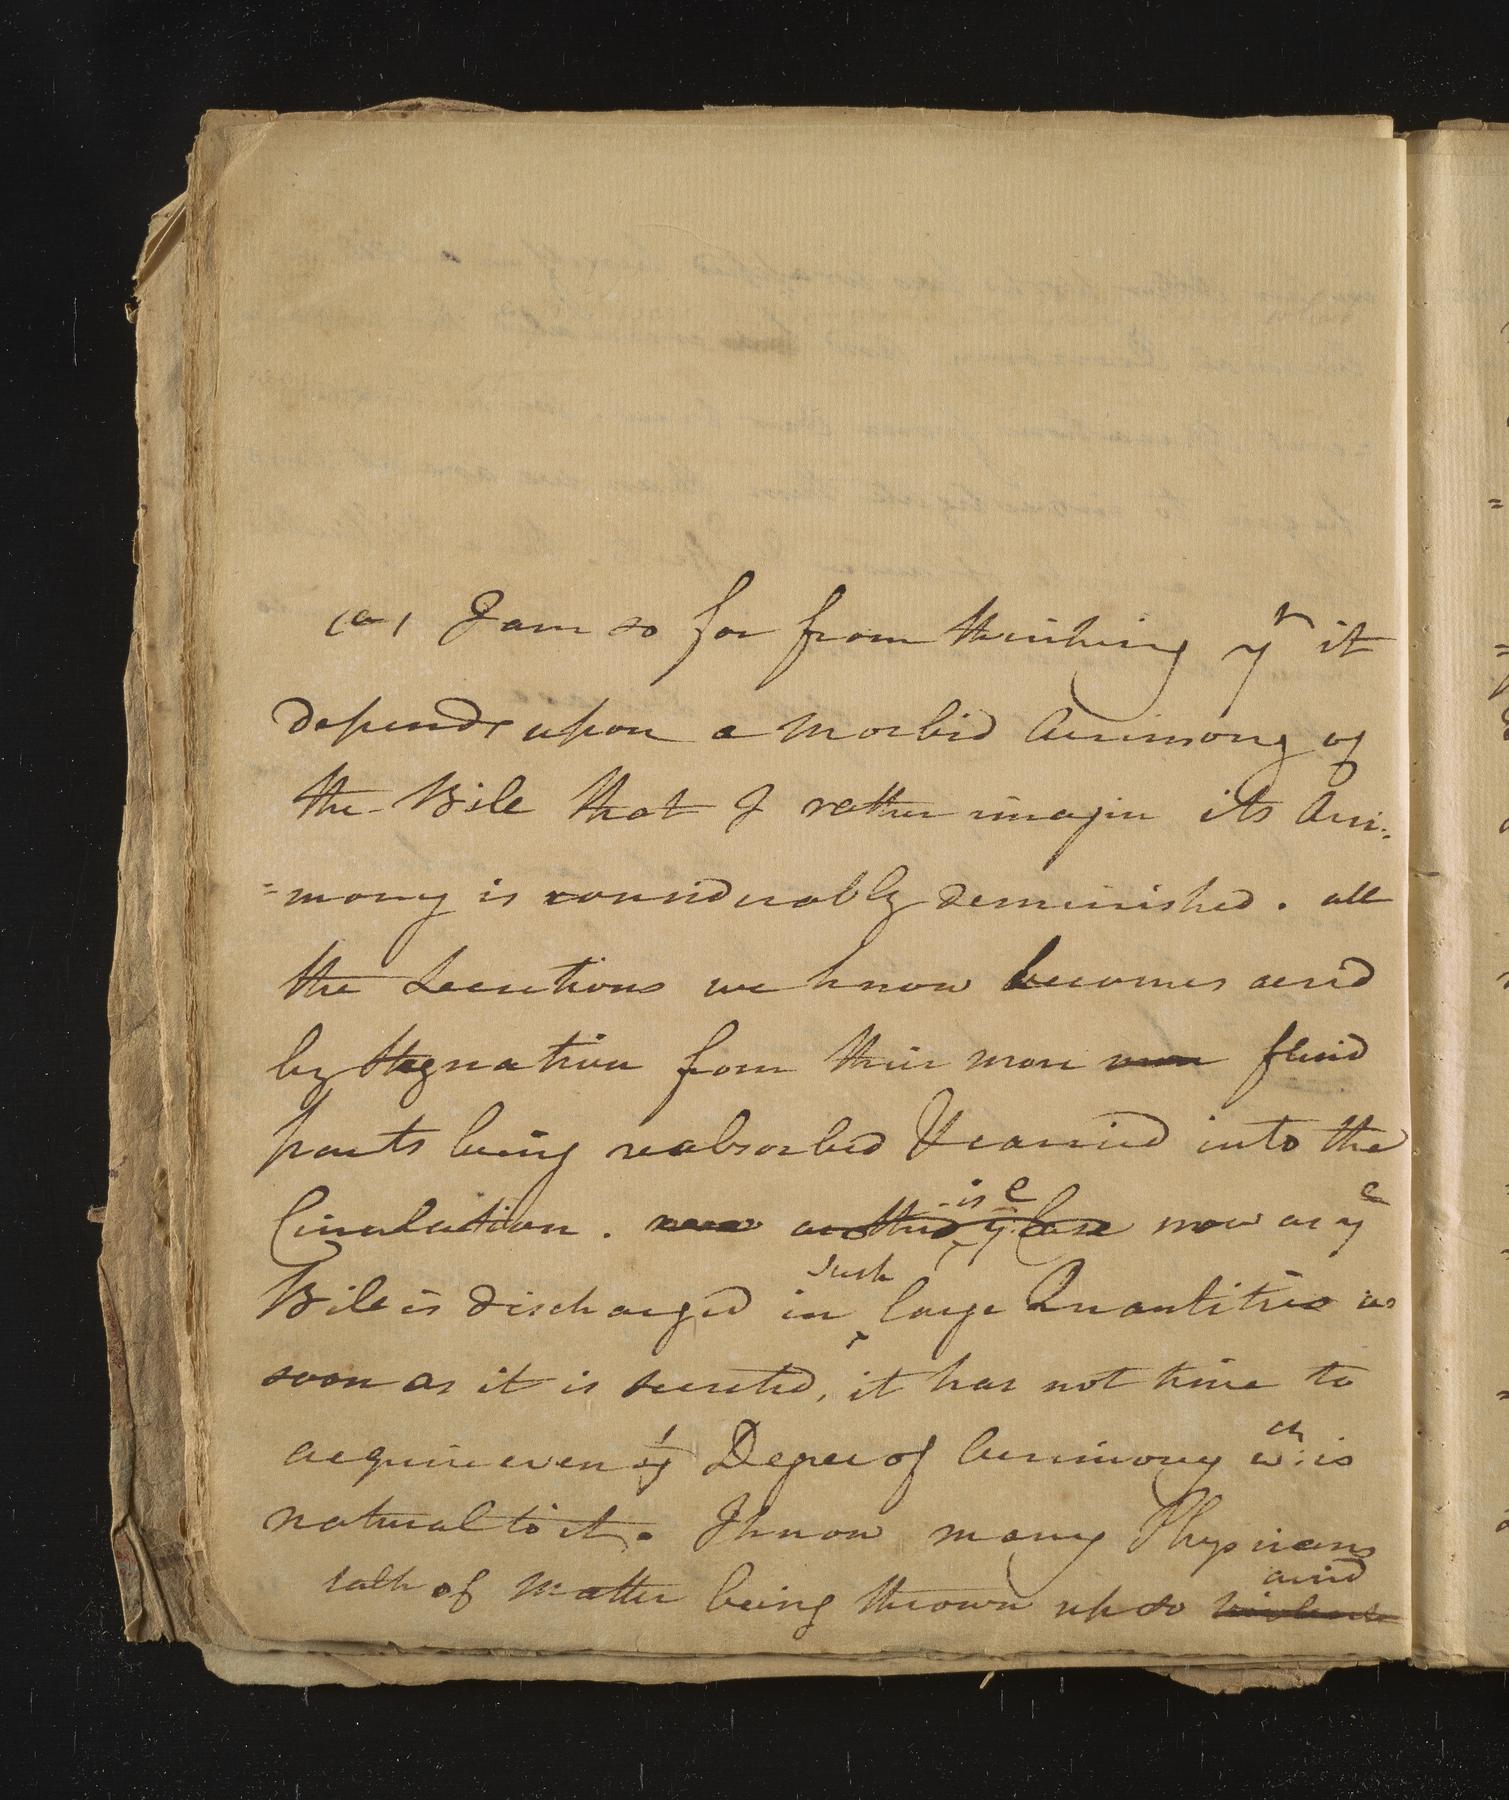 (a) I am so far from thinking yt it
depends upon a morbid Acrimony of
the Bile that I rather imagin its Acri=
=mony is considerably deminished. all
the Secretions we know becomes acrid
by Stagnation from their more fluid
parts being reabsorbed & carried into the
Circulation. as this is ye Case now as ye
Bile is discharged in such large Quantities as
soon as it is secreted, it has not time to
acquire even yt Degree of Acrimony wch: is
natural to it. I know many Physicians
talk of matter being thrown up so acrid violent